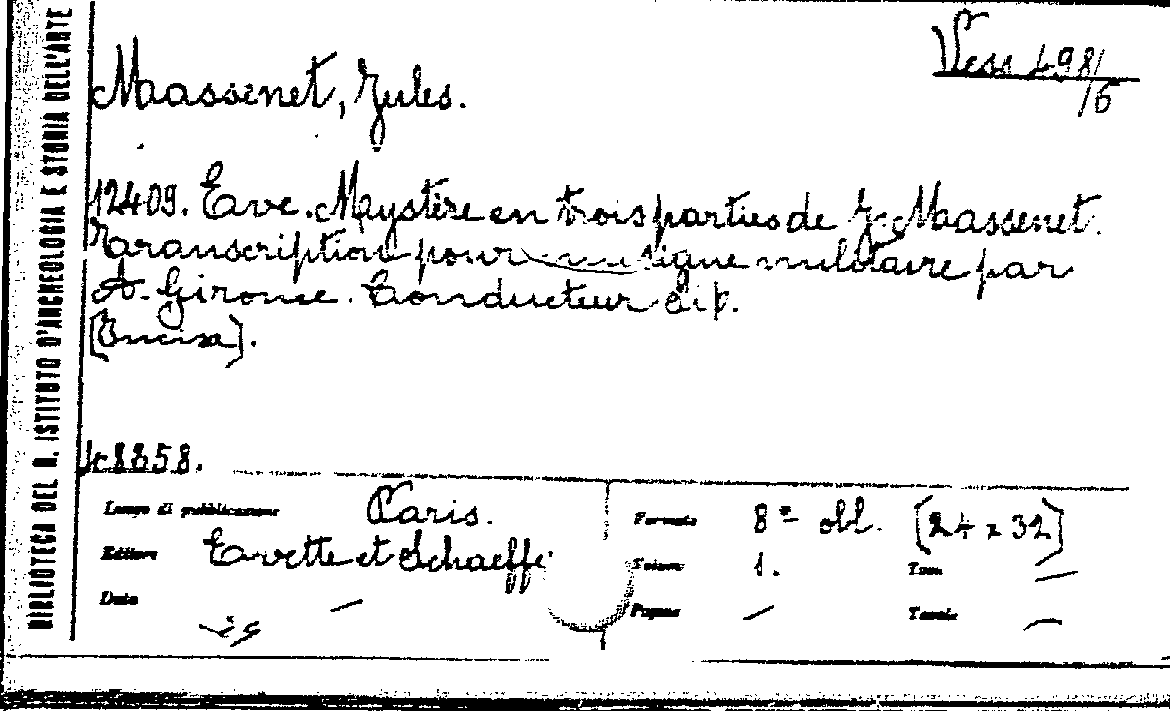 BIBLIOTECA DEL R. ISTITUTO D'ARCHEOLOGIA E STORIA DELL'ARTE
Vess 498/6
Massenet, Jules.
12409. Eve. Mystère en trois parties de J. Massenet.
Transcription pour musique militaire par
A. Gironce. Conducteur
(Incisa).
8858.
Luogo di pubblicazione Paris.
Editore Evette et Schaeffe
Data —
Formato 8º obl. [24 x 32]
Volume 1.
Tom. —
Pagine —
Tavole —